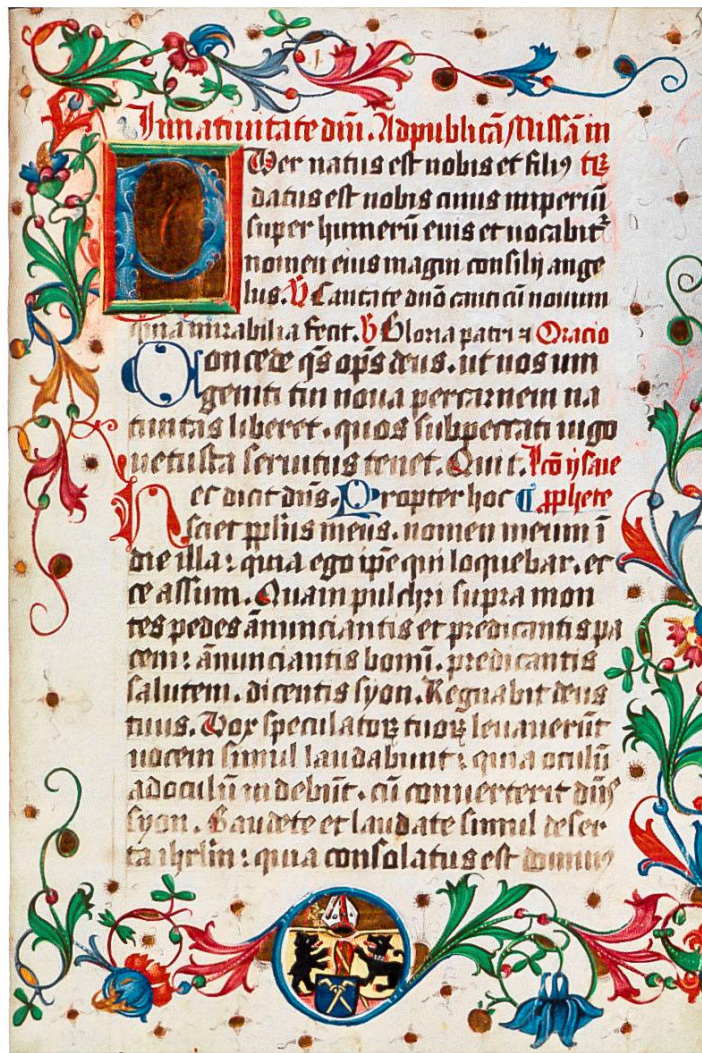 In natiuitate dni̅. Ad publicā Missā in
Puer natus est nobis et filiꝰ
datus est nobis cuius imperiū
super humerū eius et uocabit᷑
nomen eius magni consilij ange
lus. V Cantate dn̄o canticū nouum
quia mirabilia fecit. V Gloria patri ⁊ Oracio
Concede q̄s op̄s deus. ut nos um
geniti tui noua per carnem na
tiuitas liberet. quos sub peccati iugo
uetusta seruitus tenet. Qui t. ysaie
Hec dicit dn̄s. Propter hoc ꝓphete
sciet pp̄lus meus. nomen meum ī
die illa: quia ego ip̄e qui loquebar. ec
ce assum. Quam pulchri supra mon
tes pedes ānunciantis et predicantis pa
cem: ānunciantis bonū. predicantis
salutem. dicentis syon. Regnabit deus
tuus. Vox speculatoꝝ tuoꝝ leuauerūt
uocem simul laudabunt: quia oculū
ad oculū uidebūt. cū conuerterit dn̄s
syon. Gaudete et laudate simul deser
ta ihrl̄m: quia consolatus est dominꝰ